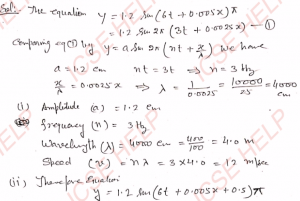 Sol:- The equation y = 1.2 sin (6t + 0.005x) π
= 1.2 sin 2π (3t + 0.0025x) —①
Comparing eq ① by y = a sin 2π (nt + x/λ) we have
a = 1.2 cm nt = 3t ⇒ n = 3 Hz
x/λ = 0.0025x ⇒ λ = 1/0.0025 = 10000/25 = 4000 cm
(i) Amplitude (a) = 1.2 cm
Frequency (n) = 3 Hz
Wavelength (λ) = 4000 cm = 400/100 = 4.0 m
Speed (v) = nλ = 3 × 4.0 = 12 m/sec
(ii) Therefore Equation
y = 1.2 sin (6t + 0.005x + 0.5) π
NCSE HELP